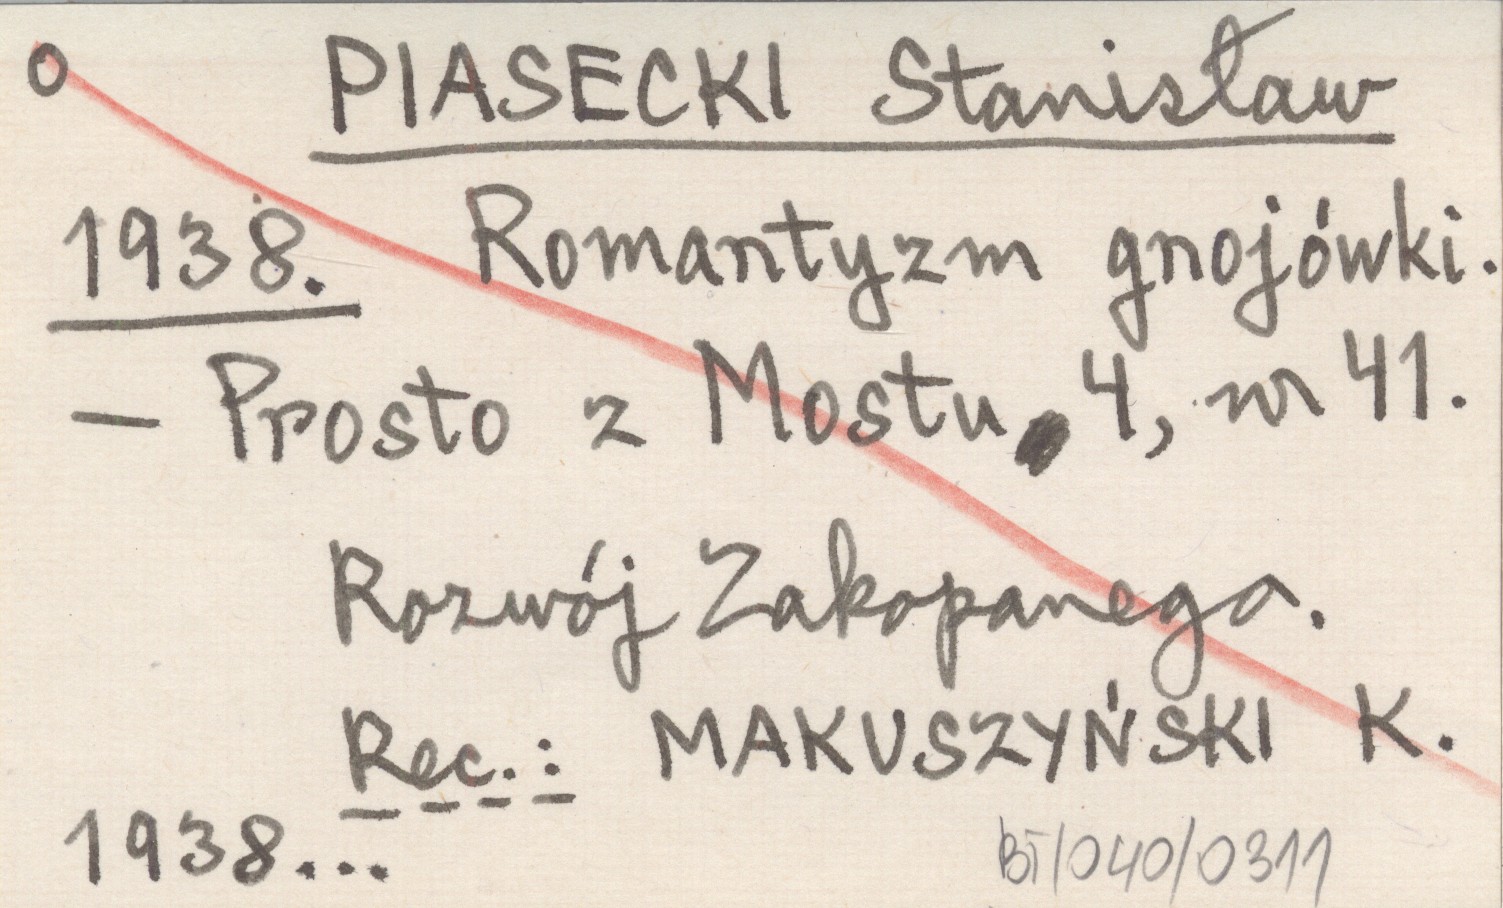 o PIASECKI Stanisław
1938. Romantyzm gnojówki.
– Prosto z Mostu 4, nr 41.
Rozwój Zakopanego.
Rec.: MAKUSZYŃSKI K.
1938...
BT/040/0311